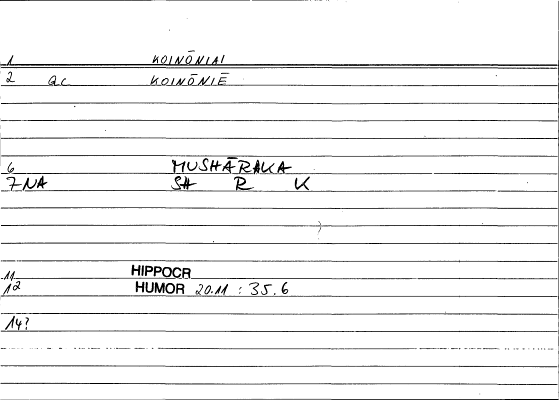 1 KOINŌNIAI
2 QC KOINŌNIĒ
6 MUSHĀRAKA
7 NA SH R K
11 HIPPOCR
12 HUMOR 20.11 : 35.6
14?